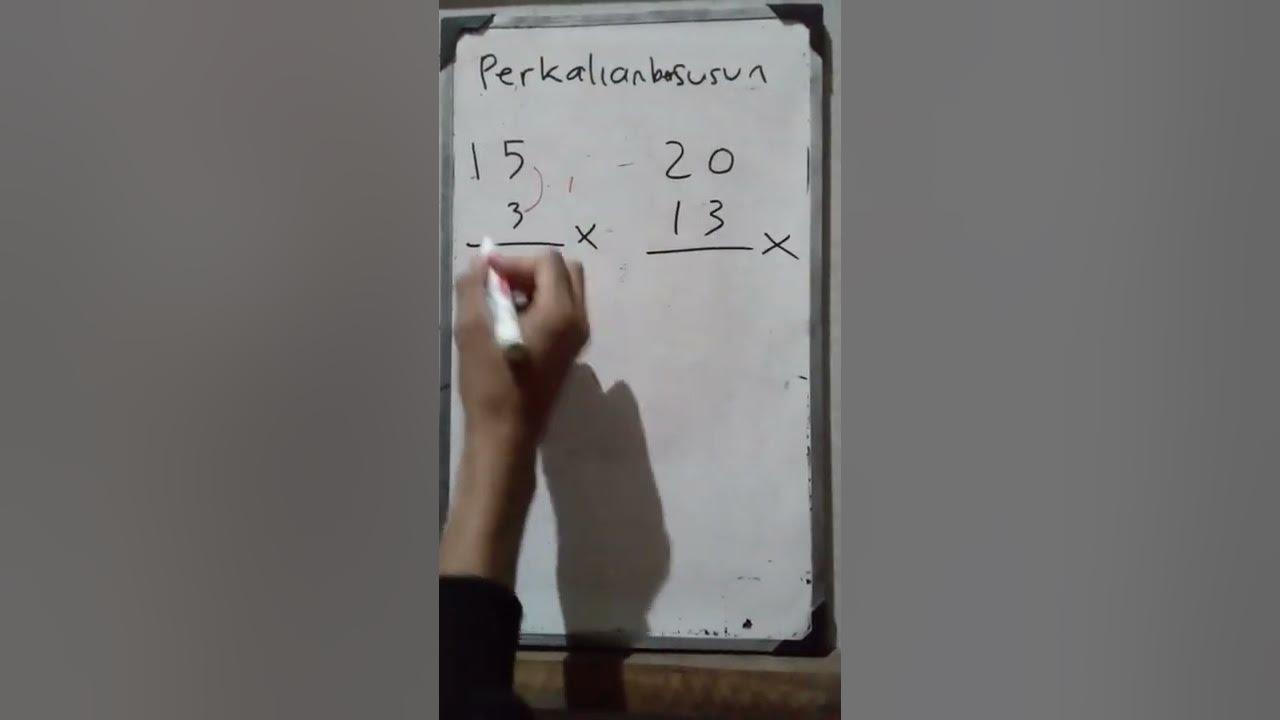 Perkalianbersusun
15 20
3 1 13
x x